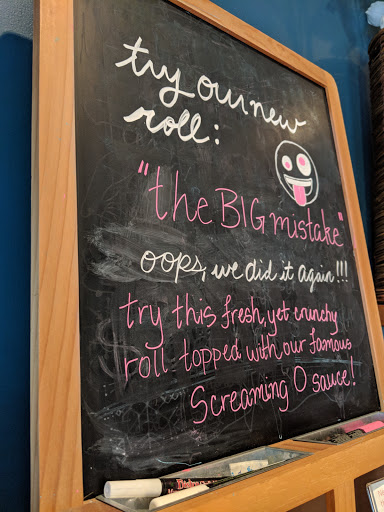 try our new
roll:
"the BIG mistake"
oops, we did it again!!!
try this fresh, yet crunchy
roll topped with our famous
Screaming O sauce!